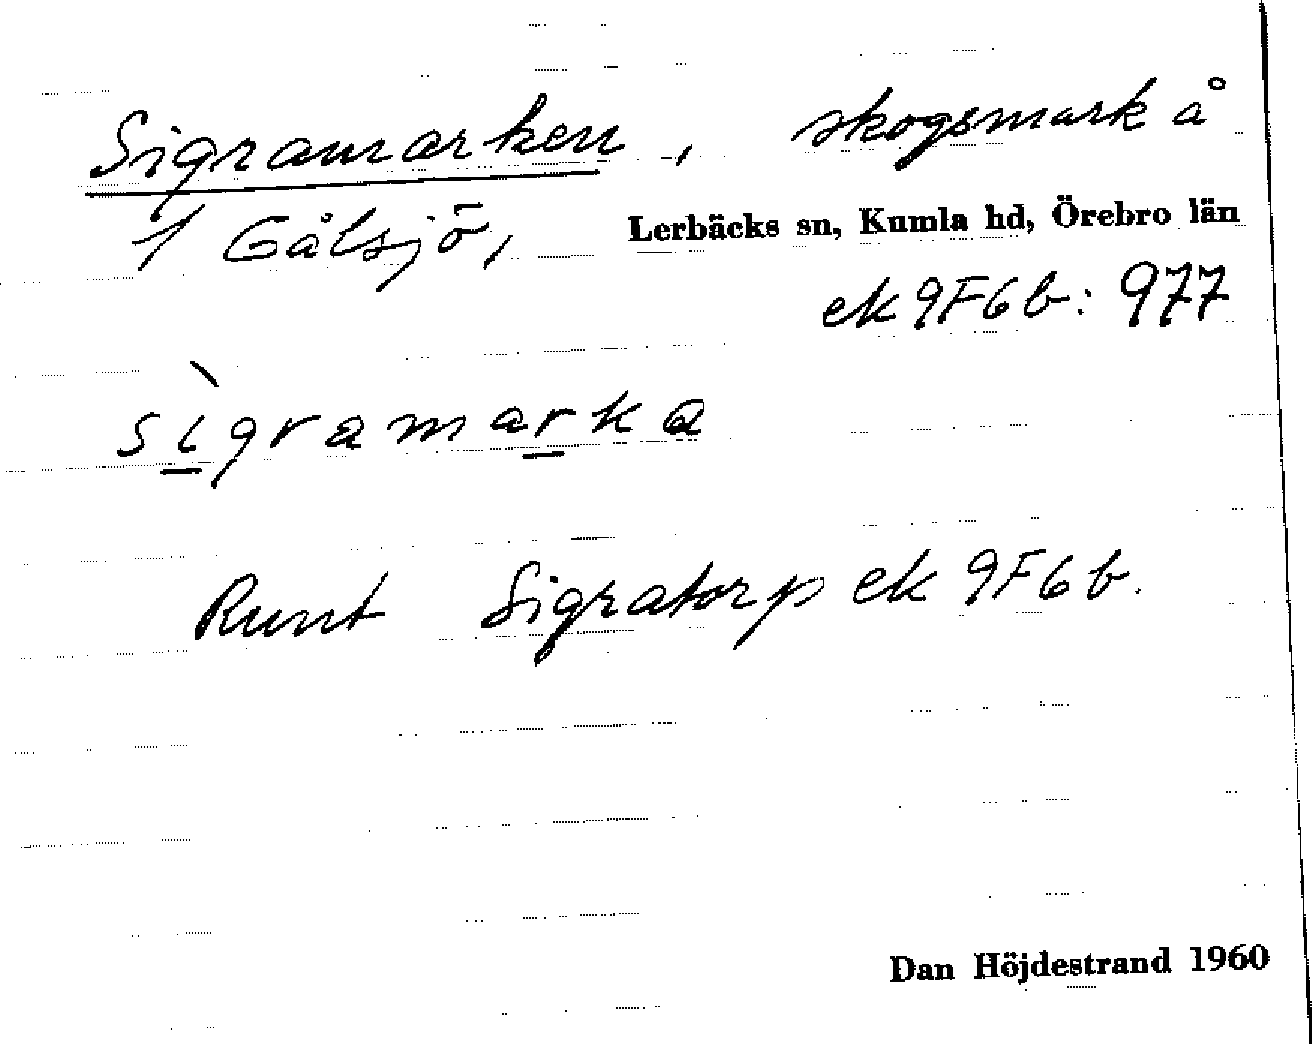 Sigramarken, skogsmark å
1 Gålsjö, Lerbäcks sn, Kumla hd, Örebro län
ek 9F6b: 977
sìgramarka
Runt Sigratorp ek 9F6b.
Dan Höjdestrand 1960